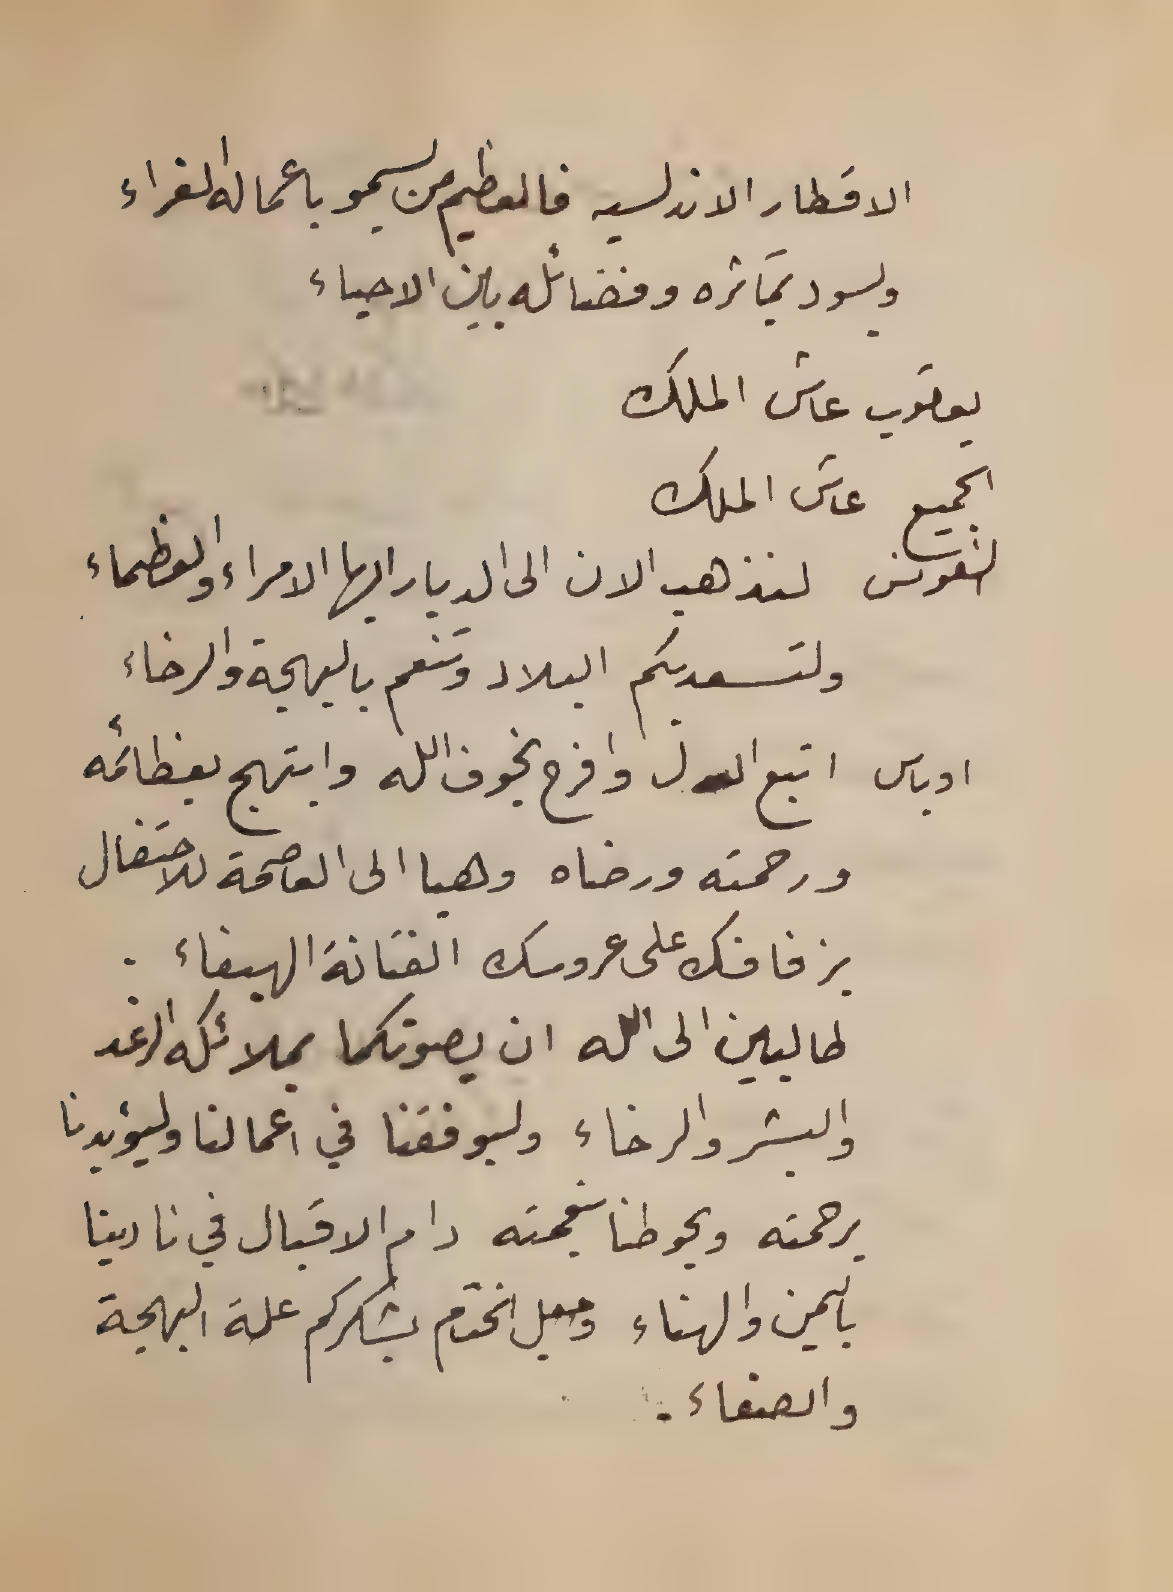 الاقطار الاندلسيه فالعظيم من يسمو باعماله الغراء
ويسود بمآثره وفضائله بين الاحياء
يعقوب عاش الملك
الجميع عاش الملك
الفونس لنذهب الان الى الديار ايها الامراء والعظماء
ولتسعد بكم البلاد وتنعم بالبهجة والرخاء
اوباس اتبع العدل وافرح بخوف الله وابتهج بعظائمه
ورحمته ورضاه وهيا الى العاصمة للاحتفال
بزفافك على عروسك الفتانة الهيفاء .
طالبين الى الله ان يصونكما بملائكة الرغد
والبشر والرخاء وليوفقنا في اعمالنا وليؤيدنا
برحمته ويحوطنا بنعمته دام الاقبال في نادينا
باليمن والهناء وجعل اختم بشكركم علة البهجة
والصفاء .